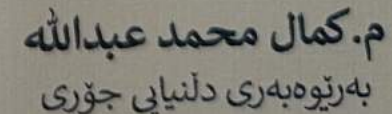 م. کمال محمد عبدالله
بەڕێوەبەری دڵنیایی جۆری